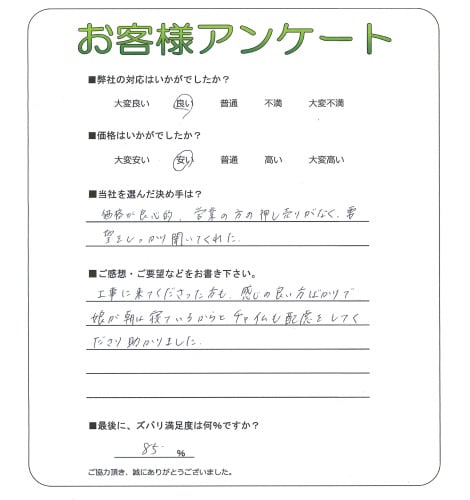 お客様アンケート
■弊社の対応はいかがでしたか？
大変良い 良い 普通 不満 大変不満
■価格はいかがでしたか？
大変安い 安い 普通 高い 大変高い
■当社を選んだ決め手は？
価格が良心的、営業の方の押し売りがなく、要
望をしっかり聞いてくれた。
■ご感想・ご要望などをお書き下さい。
工事に来てくださった方も、感じの良い方ばかりで
娘が朝は寝ているからとチャイムも配慮をしてく
ださり助かりました。
■最後に、ズバリ満足度は何％ですか？
85 ％
ご協力頂き、誠にありがとうございました。